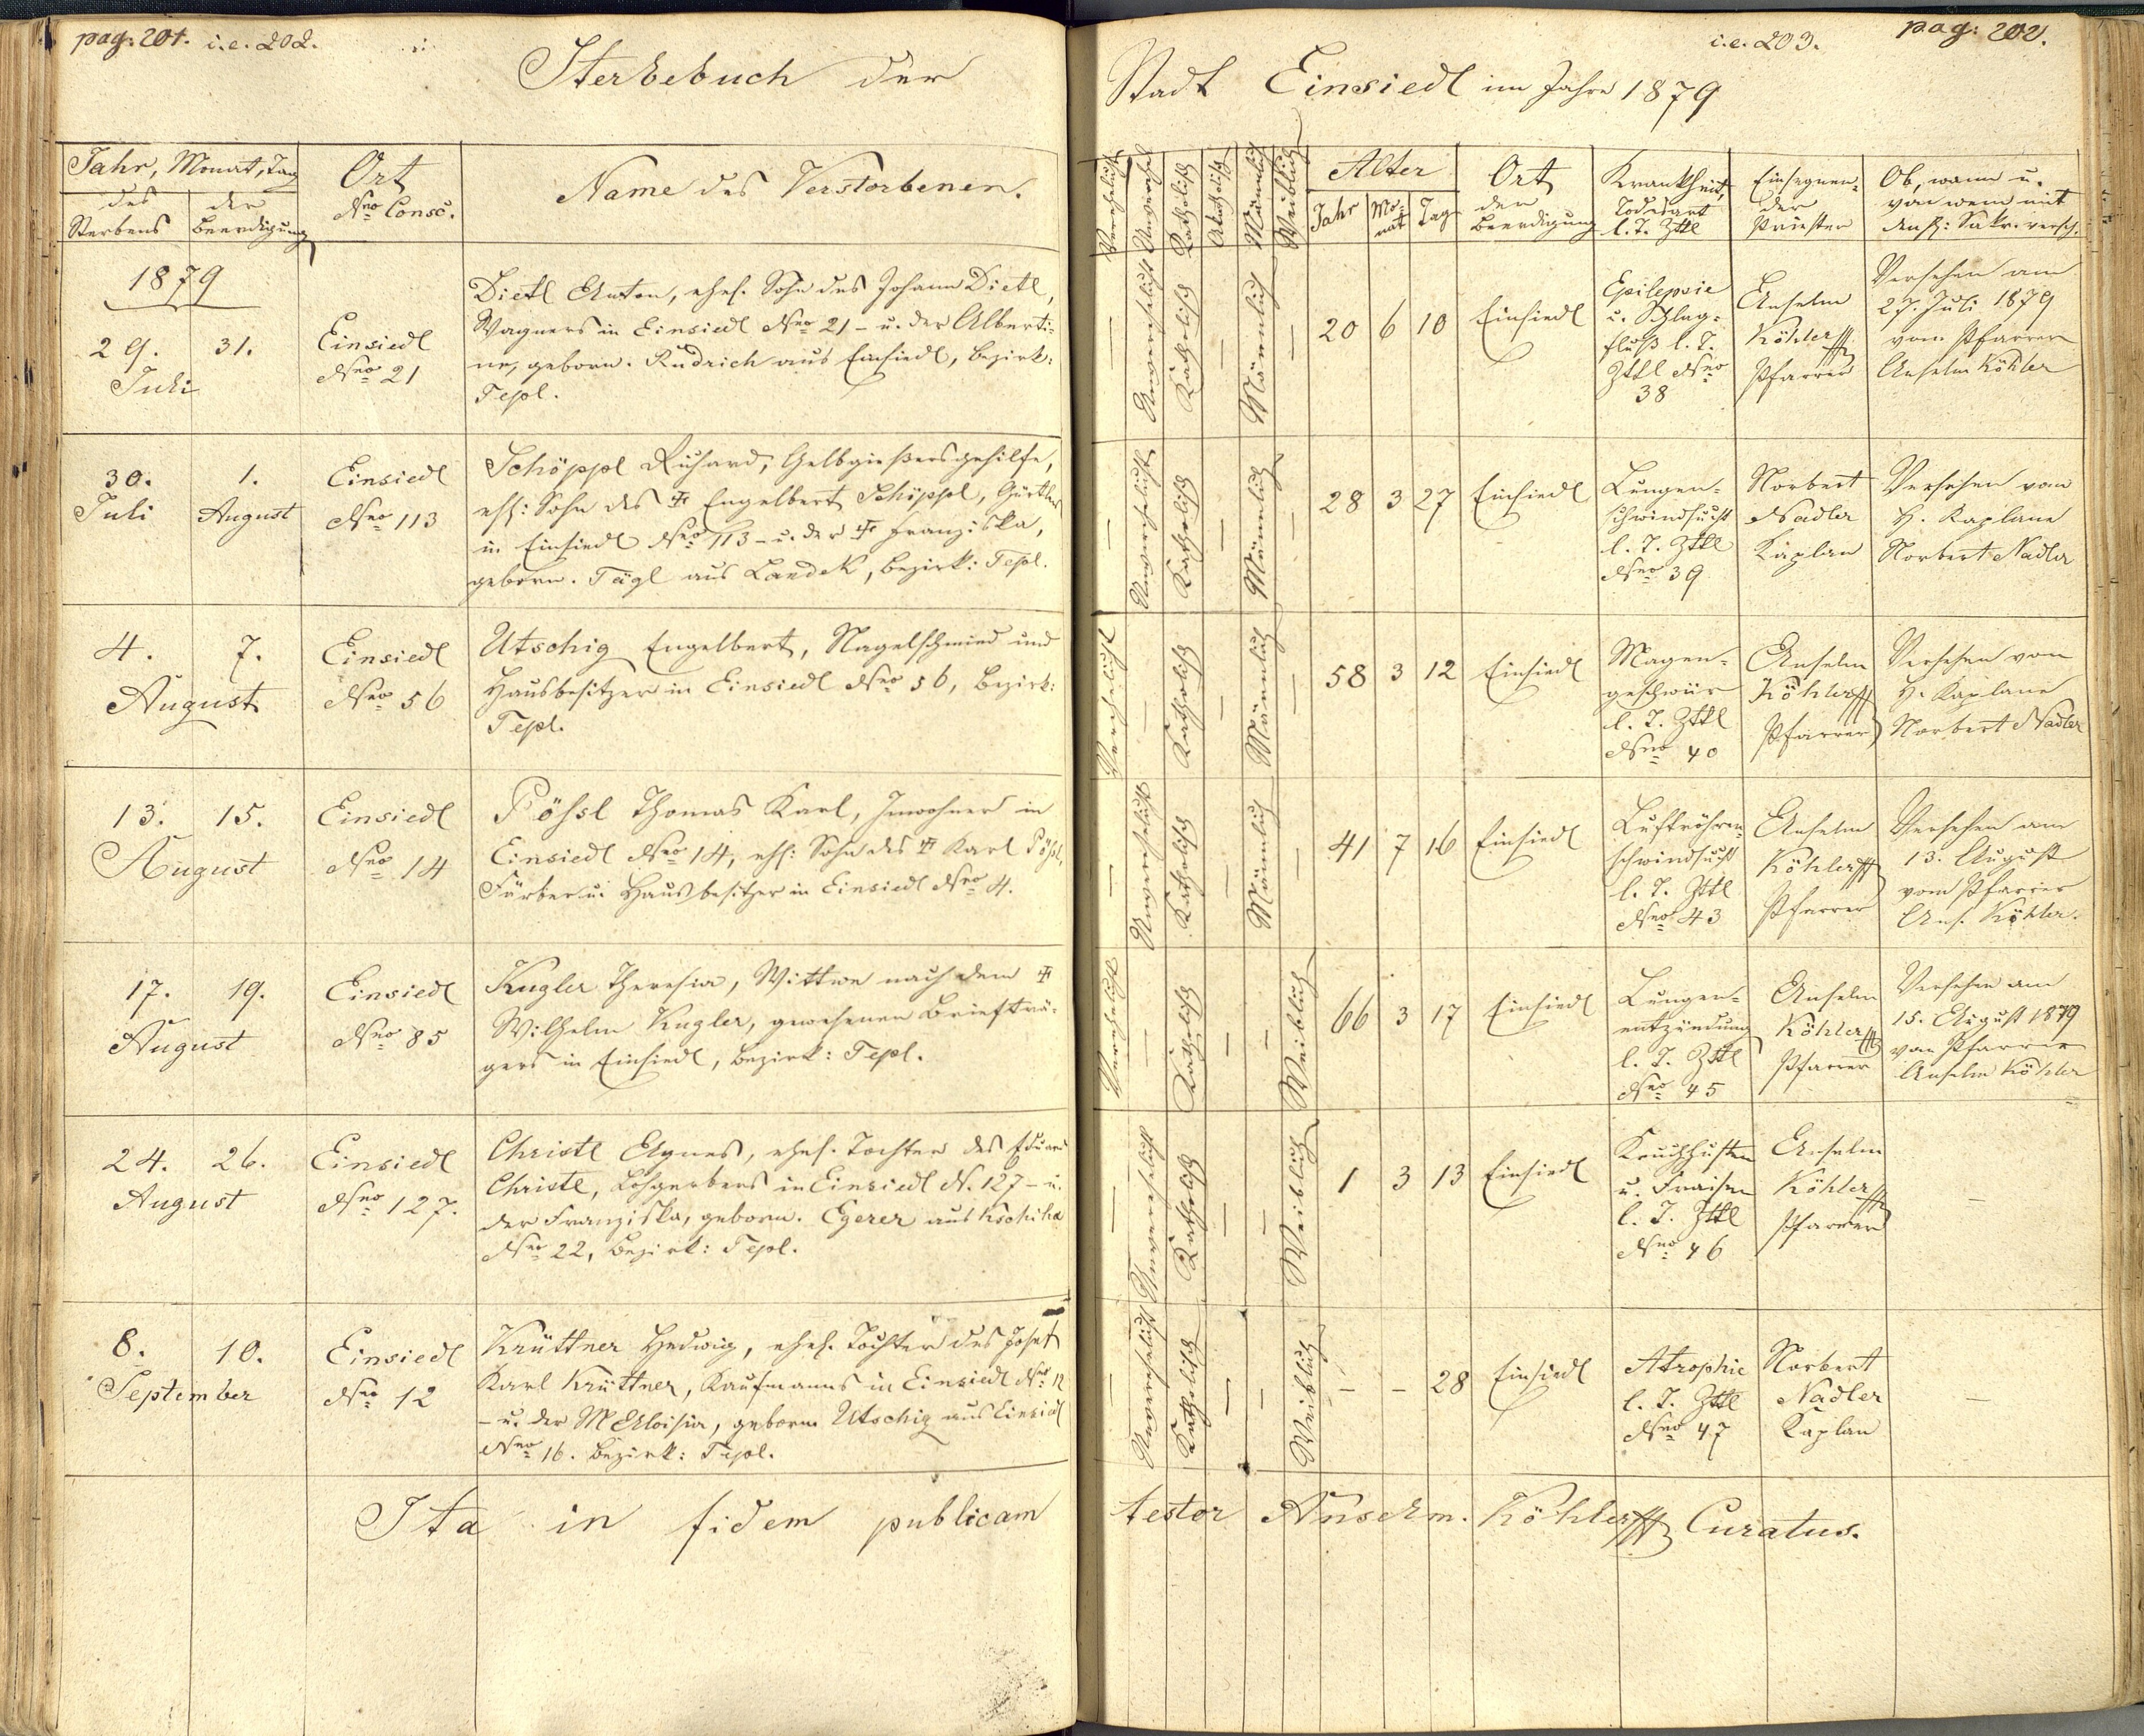 pag: 201. i.e. 202.
Sterbebuch der
Jahr, Monat, Tag
des Sterbens
der Beerdigung
Ort
Nro Consc.
Name des Verstorbenen.
1879
29. 31.
Juli
Einsiedl
Nro 21
Dietl Anton, ehel. Sohn des Johann Dietl,
Wagners in Einsiedl Nro 21 - u. der Alberti-
ne, geborn. Rudrich aus Einsiedl, Bezirk:
Tepl.
30. 1.
Juli August
Einsiedl
Nro 113
Schöppl Richard, Gelbgießersgehilfe,
ehl: Sohn des ✝ Engelbert Schöppl, Gürtlers
in Einsiedl Nro 113 - u. der ✝ Franziska,
geborn. Tägl aus Landek, Bezirk: Tepl.
4. 7.
August
Einsiedl
Nro 56
Utschig Engelbert, Nagelschmied und
Hausbesitzer in Einsiedl Nro 56, Bezirk:
Tepl.
13. 15.
August
Einsiedl
Nro 14
Pößl Thomas Karl, Inwohner in
Einsiedl Nro 14, ehl: Sohn des ✝ Karl Pößl,
Färber u. Hausbesitzer in Einsiedl Nro 4.
17. 19.
August
Einsiedl
Nro 85
Kugler Theresia, Wittwe nach dem ✝
Wilhelm Kugler, gewesenen Briefträ-
gers in Einsiedl, Bezirk: Tepl.
24. 26.
August
Einsiedl
Nro 127.
Christl Agnes, ehel. Tochter des Eduard
Christl, Lohgerbers in Einsiedl N. 127 - u.
der Franziska, geborn. Egerer aus
Nro 22, Bezirk: Tepl.
8. 10.
September
Einsiedl
Nro 12
Krüttner Hedwig, ehel. Tochter des Josef
Karl Krüttner, Kaufmanns in Einsiedl Nro 12
- u. der M Aloisia, geborn Utschig aus Einsiedl
Nro 16. Bezirk: Tepl.
Ita in fidem publicam
i.e. 203. pag: 202.
Stadt Einsiedl im Jahre 1879
Verehelicht
Unverehel
Katholisch
Akatholisch
Männlich
Weiblich
Alter
Jahr Mo-nat Tag
Ort
der
Beerdigung
Krankheit,
Todesart
l. T. Zttl
Einsegnen-
der
Priester
Ob, wann u.
von wem mit
den hl: Sakr. versch.
— Unverehelicht Katholisch — Männlich —
20 6 10 Einsiedl
Epilepsie
u. Schlag-
fluß l. T.
Zttl Nro
38
Anselm
Köhler
Pfarrer
Versehen am
27. Juli 1879
vom Pfarrer
Anselm Köhler
— Unverehelicht Katholisch — Männlich —
28 3 27 Einsiedl
Lungen-
schwindsucht
l. T. Zttl
Nro 39
Norbert
Nadler
Kaplan
Versehen vom
H. Kaplane
Norbert Nadler
Verehelicht — Katholisch — Männlich —
58 3 12 Einsiedl
Magen-
geschwür
l. T. Zttl
Nro 40
Anselm
Köhler
Pfarrer
Versehen von
H. Kaplane
Norbert Nadler
— Unverehelicht Katholisch — Männlich —
41 7 16 Einsiedl
Luftröhren-
schwindsucht
l. T. Zttl
Nro 43
Anselm
Köhler
Pfarrer
Versehen am
13. August
vom Pfarrer
Ans. Köhler.
Verehelicht — Katholisch — — Weiblich
66 3 17 Einsiedl
Lungen-
entzündung
l. T. Zttl
Nro 45
Anselm
Köhler
Pfarrer
Versehen am
15. August 1879
vom Pfarrer
Anselm Köhler
— Unverehelicht Katholisch — — Weiblich
1 3 13 Einsiedl
Keuchhusten
u. Fraisen
l. T. Zttl
Nro 46
Anselm
Köhler
Pfarrer
—
Unverehelicht Katholisch — — Weiblich
- - 28 Einsiedl
Atrophie
l. T. Zttl
Nro 47
Norbert
Nadler
Kaplan
—
testor Anselm. Köhler Curatus.